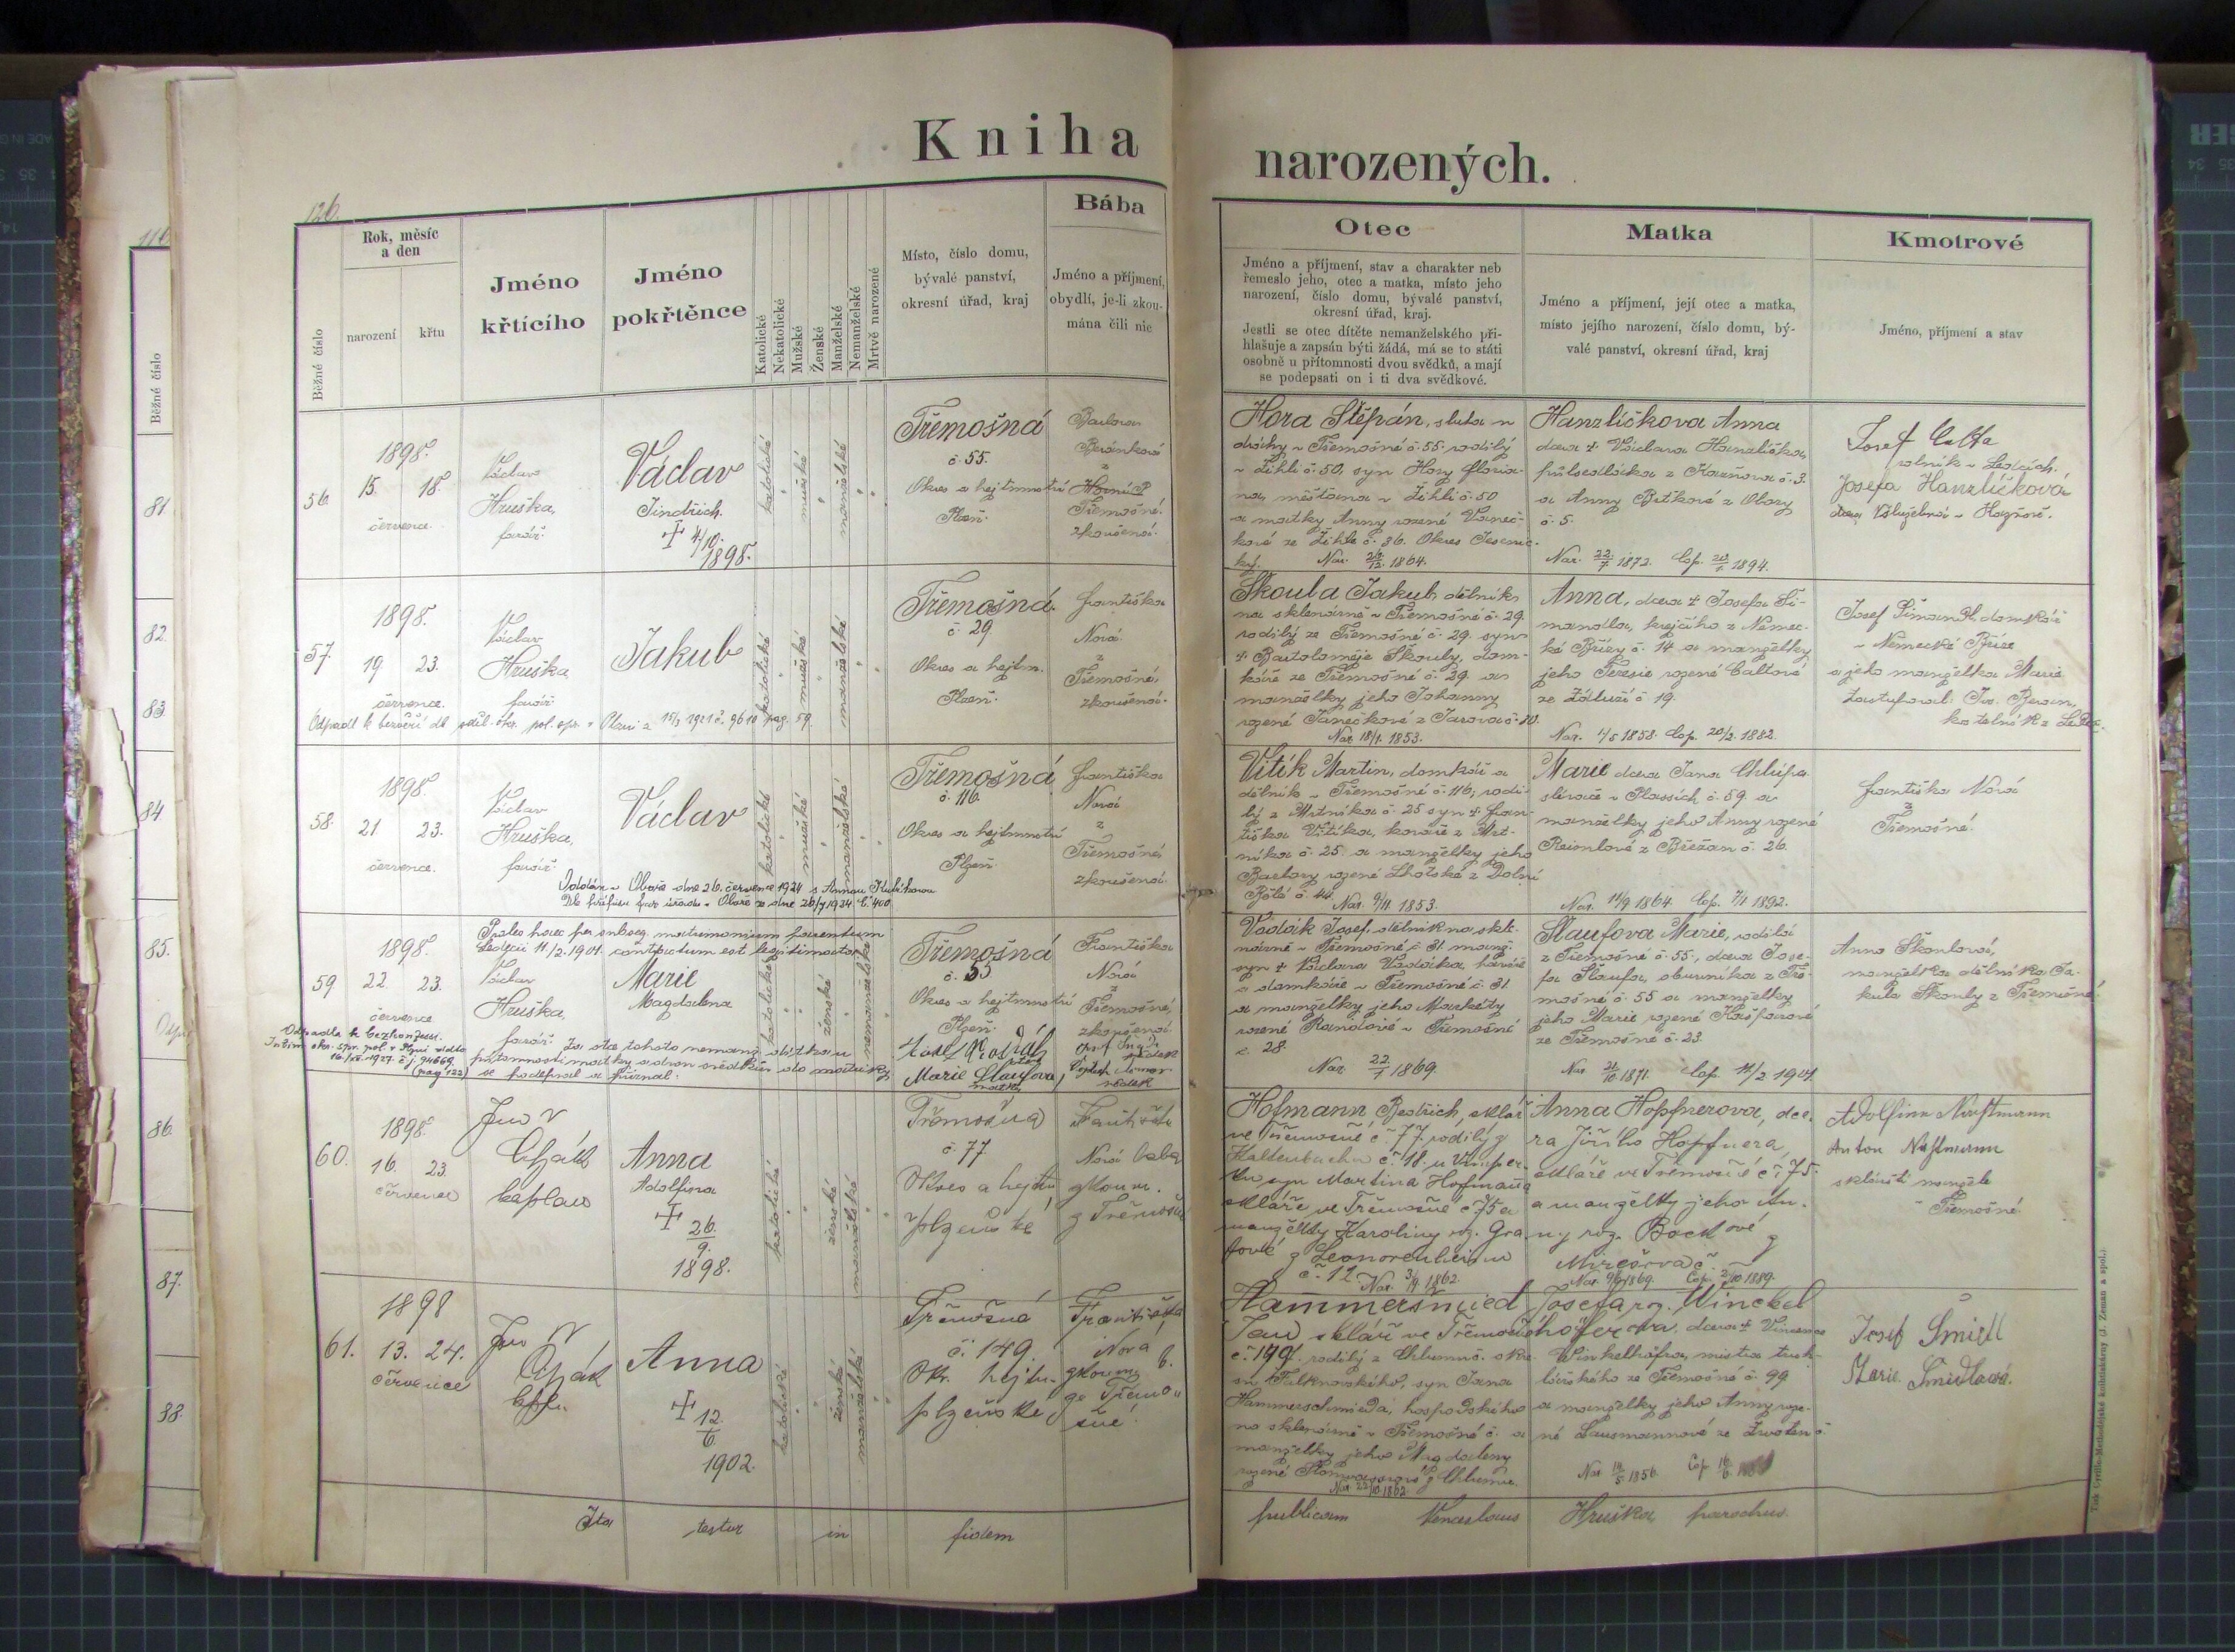 Kniha
narozených.
126.
Běžné číslo
Rok, měsíc
a den
narození
křtu
Jméno
křtícího
Jméno
pokřtěnce
Katolické
Nekatolické
Mužské
Ženské
Manželské
Nemanželské
Mrtvě narozené
Místo, číslo domu,
bývalé panství,
okresní úřad, kraj
Bába
Jméno a příjmení,
obydlí, je-li zkou-
mána čili nic
Otec
Jméno a příjmení, stav a charakter neb
řemeslo jeho, otec a matka, místo jeho
narození, číslo domu, bývalé panství,
okresní úřad, kraj.
Jestli se otec dítěte nemanželského při-
hlašuje a zapsán býti žádá, má se to státi
osobně u přítomnosti dvou svědků, a mají
se podepsati on i ti dva svědkové.
Matka
Jméno a příjmení, její otec a matka,
místo jejího narození, číslo domu, bý-
valé panství, okresní úřad, kraj
Kmotrové
Jméno, příjmení a stav
Běžné číslo
81.
82.
83.
84
85.
86.
87.
88.
56.
1898.
15. 18.
července.
Václav
Hruška,
farář.
Václav
Jindřich.
† 4/10.
1898.
katolické
mužské
manželské
Třemošná
č. 55.
Okres a hejtmnství
Plzeň.
Barbora
Beránková
z
Třemošné.
zkoušená.
Hora Štěpán, sluha u
dráhy v Třemošné č. 55. rodilý
v Žihli č. 50, syn Hory Floria-
na, měšťana v Žihli č. 50
a matky Anny rozené Vaneč-
kové ze Žihle č. 36. Okres Jesenic-
ký. Nar. 26/12. 1864.
Hanzlíčkova Anna
dcera † Václava Hanzlíčka,
půlsedláka z Kaznova č. 3.
a Anny Brtkové z Obory
č. 5.
Nar. 22/7 1872. Cop. 1894.
Josef
rolník v Ledcích.
Josefa Hanzlíčková
57.
1898.
19 23.
července.
Václav
Hruška,
farář.
Jakub
katolické
mužské
manželské
Třemošná.
č. 29
Okres a hejtm.
Plzeň.
Františka
Nová
z
Třemošné,
zkoušená.
Odpadl k bezvěří dl. sděl. okr. pol. spr. v Plzni z 15/3 1921 č. 9610 pag. 59.
Škoula Jakub dělník
na sklenárně v Třemošné č. 29.
rodilý ze Třemošné č. 29. syn
† Bartoloměje Škouly, dom-
káře ze Třemošné č. 29 a
manželky jeho Johanny
rozené Janečkové z Jarova č. 10.
Nar. 18/1. 1853.
Anna, dcera † Josefa Ši-
mandla, krejčího z Němec-
ké Břízy č. 14 a manželky
jeho Teresie rozené Caltové
ze Záluží č. 19.
Nar. 4/5 1858. Cop. 20/2. 1882.
Josef Šimandl, domkář
v Německé Bříze
a jeho manželka Marie
58.
1898.
21 23.
července.
Václav
Hruška,
farář.
Václav
katolické
mužské
manželské
Třemošná
č. 116.
Okres a hejtmnství
Plzeň.
Františka
Nová
z
Třemošné
zkoušená.
Oddán v Oboře dne 26. července 1924 s Annou Kubíkovou
Vítík Martin, domkář a
dělník v Třemošné č. 116, rodi-
lý z Mrtníka č. 25 syn † Fran-
tiška Vítíka, kováře z Mrt-
níka č. 25. a manželky jeho
Barbory rozené Lhotské z Dolní
Bělé č. 44.
Nar. 9/11 1853.
Marie dcera Jana Chlupa
slévače v Plassích č. 59. a
manželky jeho Anny rozené
z Břežan č. 26.
Nar. 14/9 1864. Cop. 7/11 1892.
Františka Nová
z
Třemošné.
59
1898.
22. 23.
července
Václav
Hruška,
farář.
Proles haec per subseq. matrimonium parentum
Ledecii 11/2. 1901. contractum est legitimata.
Marie
Magdalena
ženské
nemanželské
Třemošná
č. 55
Okres a hejtmnství
Plzeň.
Františka
Nová
z
Třemošné,
zkoušená.
Odpadla k bezkonfessi.
16/XII. 1927. č. j. 94669
(pag 122)
Za otce tohoto nemanž. dítka u
přítomnosti matky a dvou svědků do matriky
se podepsal a přiznal:
Marie Šlaufova,
matka
svědek
svědek
Vodrák Josef, dělník na skle-
nárně v Třemošné č. 31. manž.
syn † Václava Vodráka, havíře
a domkáře v Třemošné č. 31.
a manželky jeho Markéty
rozené Randové v Třemošné
č. 28.
Nar. 22/1 1869
Šlaufova Marie, rodilá
z Třemošné č. 55., dcera Jose-
fa Šlaufa, obuvníka z Tře-
mošné č. 55 a manželky
jeho Marie rozené Kašparové
ze Třemošné č. 23.
Nar. 21/10. 1871. Cop. 11/2 1901.
Anna Škoulová,
manželka dělníka Ja-
kuba Škouly z Třemošné
60.
1898.
16. 23.
července
Jan
kaplan
Anna
Adolfina
† 26/9.
1898.
katolické
ženské
manželské
Třemošná
č. 77
Okres a hejtm
plzeňské
Františka
Nová bába
zkoum.
z Třemošné
Hofmann Bedřich, sklář
ve Třemošné č. 77. rodilý z
Kaltenbachu č. 18. u Vimper-
ku syn Martina Hofmanna
skláře ve Třemošné č. 75 a
manželky Karoliny roz. Gra-
fové z Leonorenhainu
č. 12. Nar. 3/9. 1862.
Anna Hopfnerova, dce-
ra Jiřího Hopfnera,
skláře ve Třemošné č. 75.
a manželky jeho An-
ny roz. Bockové z
Mirošova č.
Cop. 2/10 1889.
Adolfina
Anton
skláští manželé
v Třemošné.
61.
1898
13. 24.
července
Jan
kapl.
Anna
† 12/6
1902.
katolické
ženské
manželské
Třemošná
č. 149
Okr. hejtm.
plzeňské
Františka
Nová
zkoum. b.
ze Třemo-
šné.
Hammerschmied
Jan sklář ve Třemošné
č. 149. rodilý z Chlumu č. okre-
su Falknovského, syn Jana
Hammerschmieda, hospodského
na sklenárně v Třemošné č. a
manželky jeho Magdaleny
rozené z Chlumu.
Nar. 22/10. 1862
Josefa roz. Winckel-
höferova, dcera † Vincence
Winkelhöfra, mistra truh-
lářského ze Třemošné č. 99
a manželky jeho Anny roze-
né Lausmannové ze Zwoten č.
Nar. 14/5 1856. Cop. 16/6
Josef Šmidl
Marie Šmidlová.
Ita testor in fidem
publicam Venceslaus Hruška parochus.
Tisk Cyrillo-Methodějské knihtiskárny (J. Zeman a spol.)